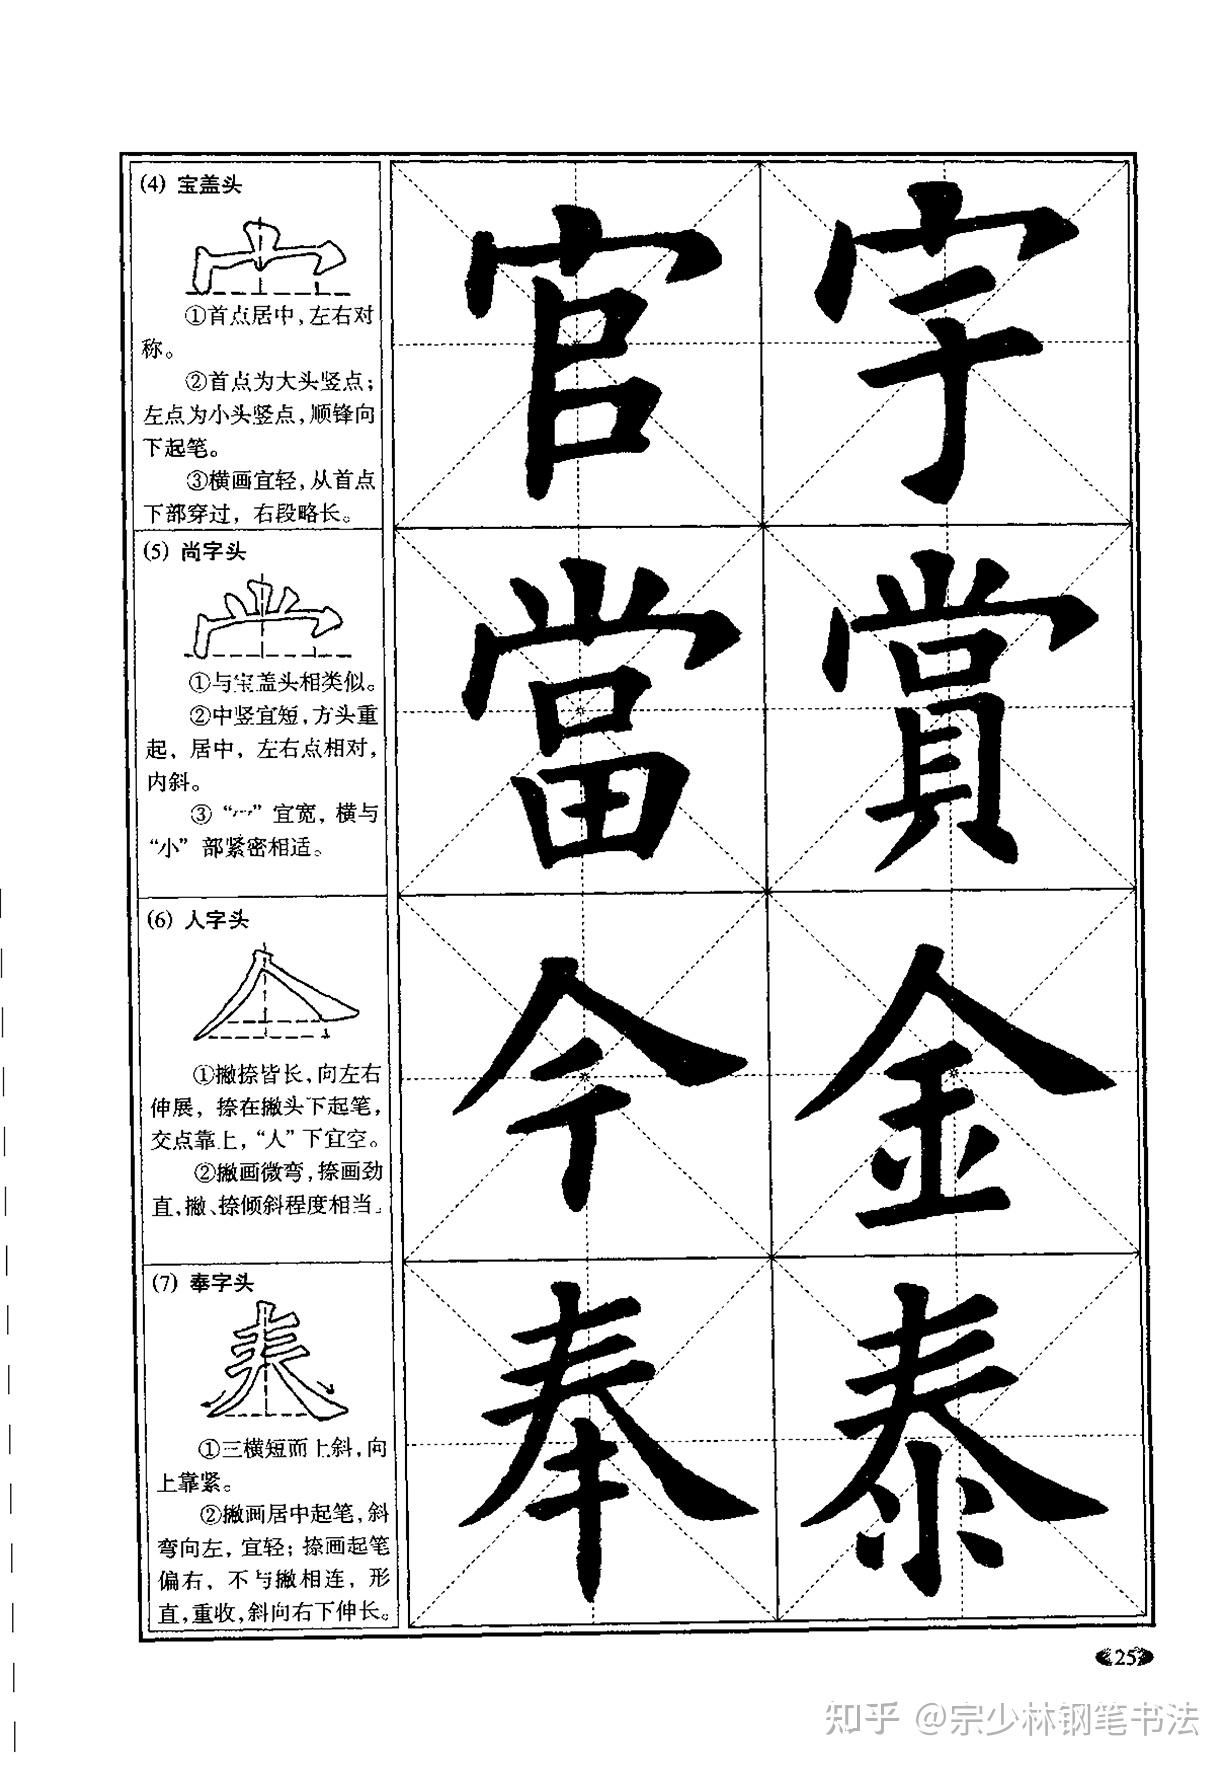 (4) 宝盖头
①首点居中，左右对
称。
②首点为大头竖点；
左点为小头竖点，顺锋向
下起笔。
③横画宜轻，从首点
下部穿过，右段略长。
官 字
(5) 尚字头
①与宝盖头相类似。
②中竖宜短，方头重
起，居中，左右点相对，
内斜。
③“冖”宜宽，横与
“小”部紧密相适。
當 賞
(6) 人字头
①撇捺皆长，向左右
伸展，捺在撇头下起笔，
交点靠上，“人”下宜空。
②撇画微弯，捺画劲
直，撇、捺倾斜程度相当。
今 金
(7) 奉字头
①三横短而上斜，向
上靠紧。
②撇画居中起笔，斜
弯向左，宜轻；捺画起笔
偏右，不与撇相连，形
直，重收，斜向右下伸长。
奉 泰
25
知乎 @宗少林钢笔书法